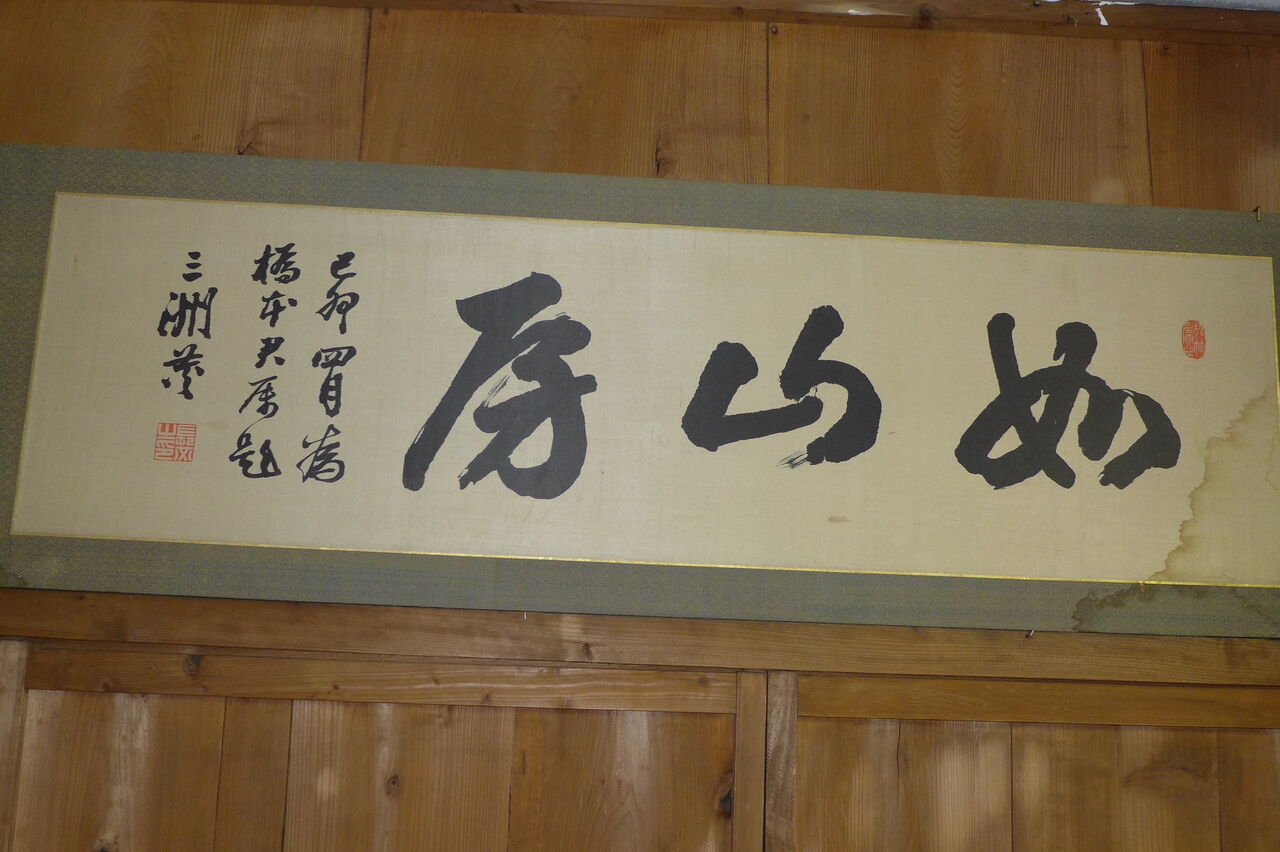 如山房
己卯四月為
橋本君属題
三洲